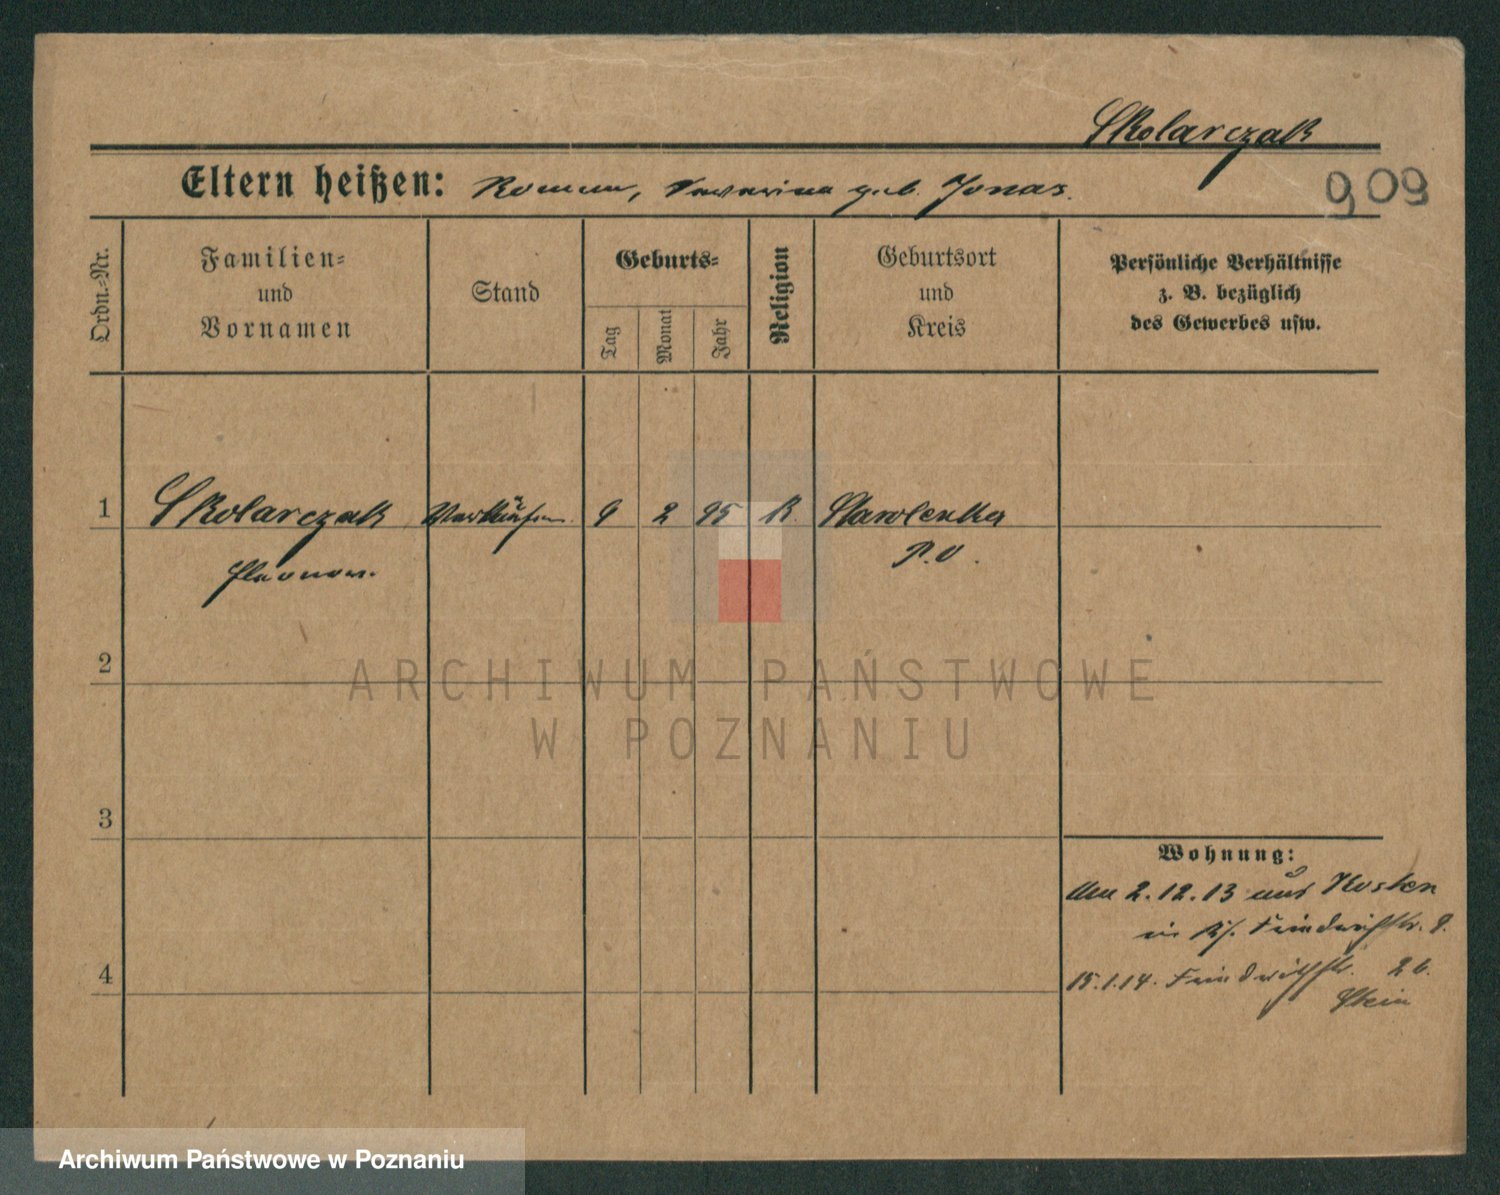 Skolarczak
Eltern heißen: Roman, geb. Jonas.
909
Ordn.-Nr.
Familien-
und
Vornamen
Stand
Geburts-
Tag
Monat
Jahr
Religion
Geburtsort
und
Kreis
Persönliche Verhältnisse
z. B. bezüglich
des Gewerbes usw.
1 Skolarczak 9 2 95 K. Starolenka
P. O.
2
3
4
Wohnung:
2.12.13 aus Kosten
in Friedrichstr. 9.
15.1.14. Friedrichstr. 26.
Stein
ARCHIWUM PAŃSTWOWE
W POZNANIU
Archiwum Państwowe w Poznaniu